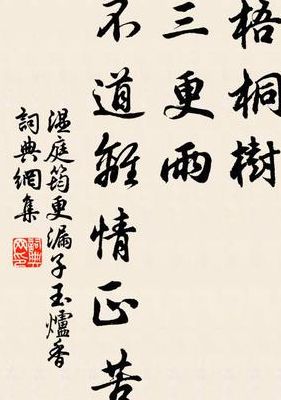 梧桐樹
三更雨
不道離情正苦
溫庭筠更漏子玉爐香
詞典網集